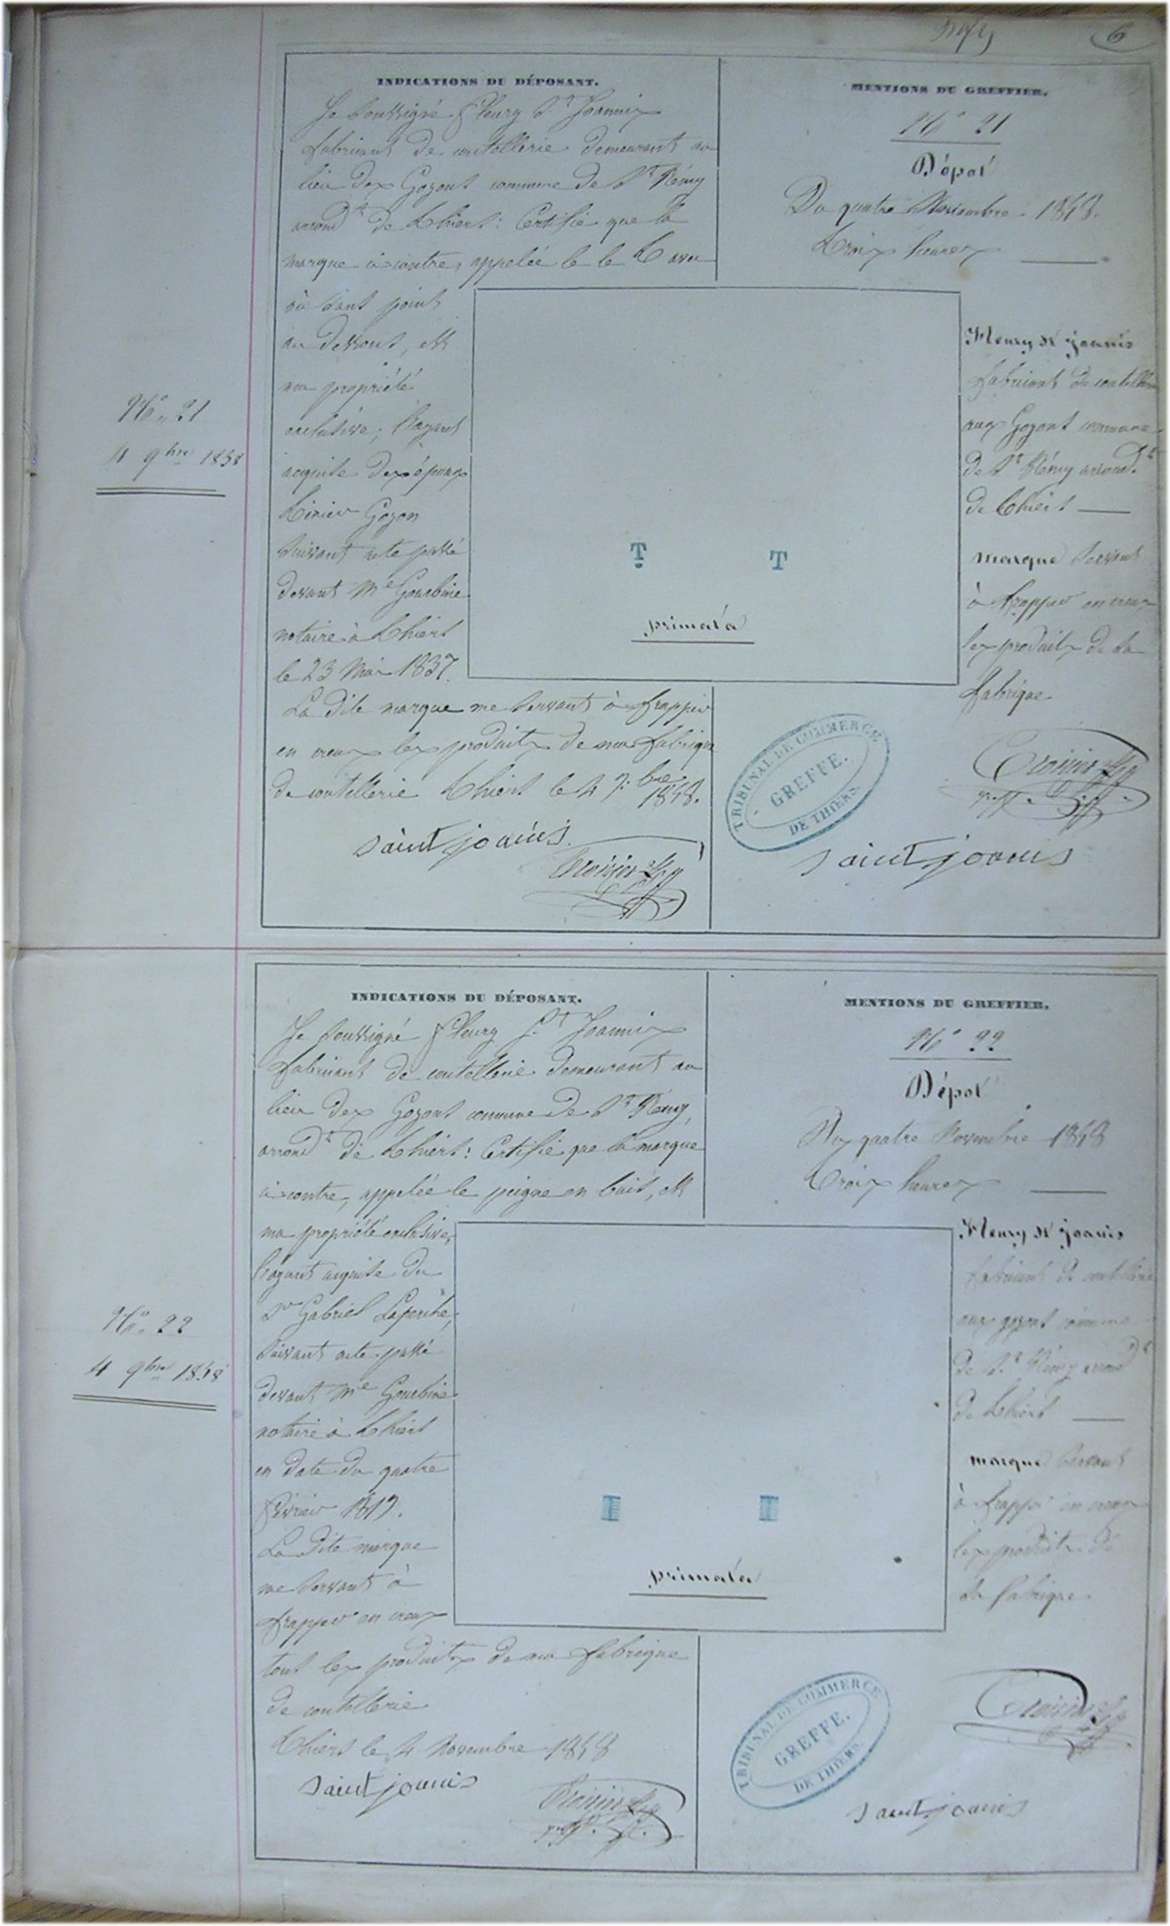 6
INDICATIONS DU DÉPOSANT.
Je soussigné Fleury St Joannis
fabricant de coutellerie demeurant au
lieu des Gozons commune de St Rémy
arrondt de Thiers: Certifie que la
marque ci contre, appelée le T avec
point
au dessous, est
ma propriété
exclusive; l'ayant
acquise des époux
Gozon
suivant acte passé
devant Me Gourbine
notaire à Thiers
le 23 Mai 1837.
La dite marque me servant à frapper
en creux les produits de ma fabrique
de coutellerie Thiers le 4 9.bre
1858.
saint joanis
MENTIONS DU GREFFIER.
No 21
Dépot
Du quatre Novembre 1858.
Trois heures
Fleury St joanis
fabricant de coutellerie
aux Gozons commune
de St Rémy arrondt
de Thiers
marque servant
à frapper en creux
les produits de sa
fabrique
No. 21
4 9bre 1858
T T
primata
TRIBUNAL DE COMMERCE
GREFFE.
DE THIERS
saint joanis
INDICATIONS DU DÉPOSANT.
Je soussigné Fleury St Joannis
fabricant de coutellerie demeurant au
lieu des Gozons commune de St Rémy,
arrondt de Thiers: Certifie que la marque
ci contre, appelée le peigne en buis, est
ma propriété exclusive,
l'ayant acquise du
Sr Gabriel
suivant acte passé
devant Me Gourbine
notaire à Thiers
en date du quatre
février
La dite marque
me servant à
frapper en creux
tous les produits de ma fabrique
de coutellerie
Thiers le 4 Novembre 1858
saint joanis
MENTIONS DU GREFFIER.
No 22
Dépot
Du quatre Novembre 1858
Trois heures
Fleury St joanis
fabricant de coutellerie
aux gozons commune
de St Rémy arrondt
de Thiers
marque servant
à frapper en creux
les produits de
sa fabrique
No. 22
4 9bre 1858
primata
TRIBUNAL DE COMMERCE
GREFFE.
DE THIERS
saint joanis